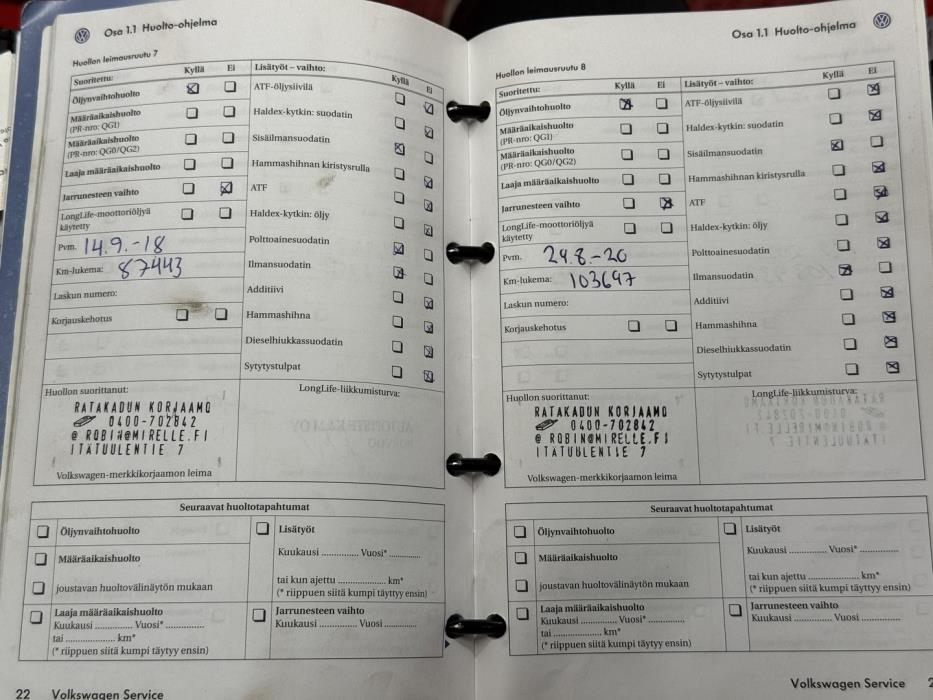 Osa 1.1 Huolto-ohjelma
Huollon leimausruutu 7
Suoritettu: Kyllä Ei
Öljynvaihtohuolto
Määräaikaishuolto
(PR-nro: QG1)
Määräaikaishuolto
(PR-nro: QG0/QG2)
Laaja määräaikaishuolto
Jarrunesteen vaihto
LongLife-moottoriöljyä
käytetty
Pvm. 14.9.-18
Km-lukema: 87443
Laskun numero:
Korjauskehotus
Lisätyöt – vaihto: Kyllä Ei
ATF-öljysiivilä
Haldex-kytkin: suodatin
Sisäilmansuodatin
Hammashihnan kiristysrulla
ATF
Haldex-kytkin: öljy
Polttoainesuodatin
Ilmansuodatin
Additiivi
Hammashihna
Dieselhiukkassuodatin
Sytytystulpat
Huollon suorittanut:
RATAKADUN KORJAAMO
0400-702842
@ ROBIN@MIRELLE.FI
ITÄTUULENTIE 7
LongLife-liikkumisturva:
Volkswagen-merkkikorjaamon leima
Seuraavat huoltotapahtumat
Öljynvaihtohuolto
Määräaikaishuolto
joustavan huoltovälinäytön mukaan
Laaja määräaikaishuolto
Kuukausi .............. Vuosi* ..............
tai .................... km*
(* riippuen siitä kumpi täytyy ensin)
Lisätyöt
Kuukausi .............. Vuosi* ............
tai kun ajettu .................. km*
(* riippuen siitä kumpi täytyy ensin)
Jarrunesteen vaihto
Kuukausi .............. Vuosi ..............
22 Volkswagen Service
Osa 1.1 Huolto-ohjelma
Huollon leimausruutu 8
Suoritettu: Kyllä Ei
Öljynvaihtohuolto
Määräaikaishuolto
(PR-nro: QG1)
Määräaikaishuolto
(PR-nro: QG0/QG2)
Laaja määräaikaishuolto
Jarrunesteen vaihto
LongLife-moottoriöljyä
käytetty
Pvm. 24.8.-20
Km-lukema: 103697
Laskun numero:
Korjauskehotus
Lisätyöt – vaihto: Kyllä Ei
ATF-öljysiivilä
Haldex-kytkin: suodatin
Sisäilmansuodatin
Hammashihnan kiristysrulla
ATF
Haldex-kytkin: öljy
Polttoainesuodatin
Ilmansuodatin
Additiivi
Hammashihna
Dieselhiukkassuodatin
Sytytystulpat
Huollon suorittanut:
RATAKADUN KORJAAMO
0400-702842
@ ROBIN@MIRELLE.FI
ITÄTUULENTIE 7
LongLife-liikkumisturva:
Volkswagen-merkkikorjaamon leima
Seuraavat huoltotapahtumat
Öljynvaihtohuolto
Määräaikaishuolto
joustavan huoltovälinäytön mukaan
Laaja määräaikaishuolto
Kuukausi .............. Vuosi* ..............
tai .................... km*
(* riippuen siitä kumpi täytyy ensin)
Lisätyöt
Kuukausi .............. Vuosi* ..............
tai kun ajettu .................. km*
(* riippuen siitä kumpi täytyy ensin)
Jarrunesteen vaihto
Kuukausi .............. Vuosi ..............
Volkswagen Service